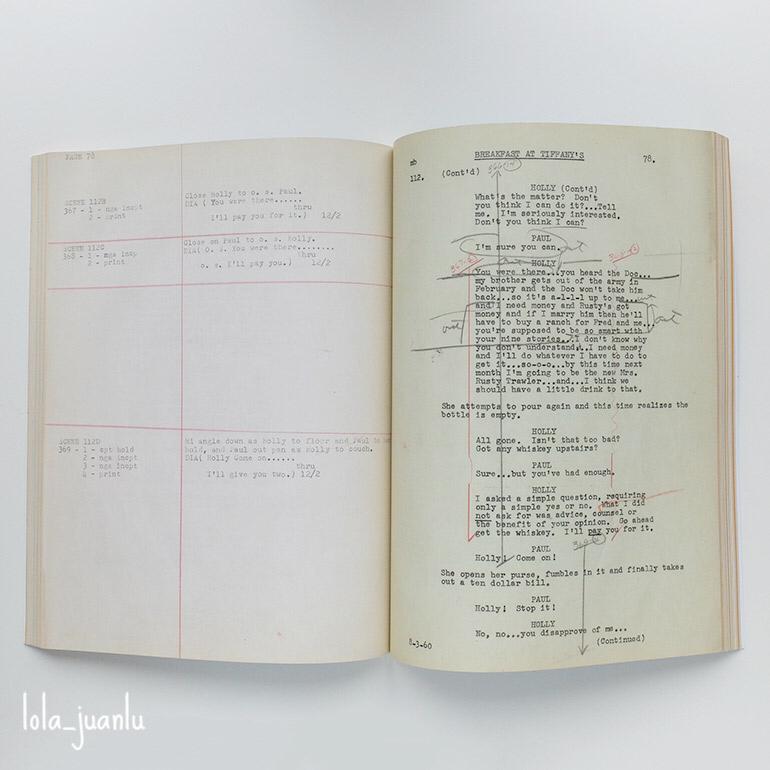 PAGE 78
SCENE 112B
367 - 1 - nga incpt
2 - print
Close Holly to o. s. Paul.
DIA ( You were there......
thru
I'll pay you for it.) 12/2
SCENE 112C
368 - 1 - nga incp
2 - print
Close on Paul to o. s. Holly.
DIA( O. S. You were there........
thru
o. s. I'll pay you.) 12/2
SCENE 112D
369 - 1 - cpt hold
2 - nga incpt
3 - nga incpt
4 - print
Hi angle down as Holly to floor and Paul to
hold, and Paul out pan as Holly to couch.
DIA( Holly Come on......
thru
I'll give you two.) 12/2
mb
BREAKFAST AT TIFFANY'S
78.
112.
(Cont'd)
HOLLY (Cont'd)
What's the matter? Don't
you think I can do it?...Tell
me. I'm seriously interested.
Don't you think I can?
PAUL
I'm sure you can.
HOLLY
You were there...you heard the Doc...
my brother gets out of the army in
February and the Doc won't take him
back...so it's a-l-l-l up to me...
and I need money and Rusty's got
money and if I marry him then he'll
have to buy a ranch for Fred and me...
you're supposed to be so smart with
your nine stories...I don't know why
you don't understand...I need money
and I'll do whatever I have to do to
get it...so-o-o...by this time next
month I'm going to be the new Mrs.
Rusty Trawler...and...I think we
should have a little drink to that.
out
out
She attempts to pour again and this time realizes the
bottle is empty.
HOLLY
All gone. Isn't that too bad?
Got any whiskey upstairs?
PAUL
Sure...but you've had enough.
HOLLY
I asked a simple question, requiring
only a simple yes or no. What I did
not ask for was advice, counsel or
the benefit of your opinion. Go ahead
get the whiskey. I'll pay you for it.
PAUL
Holly! Come on!
She opens her purse, fumbles in it and finally takes
out a ten dollar bill.
PAUL
Holly! Stop it!
HOLLY
No, no...you disapprove of me...
(Continued)
8-3-60
lola_juanlu